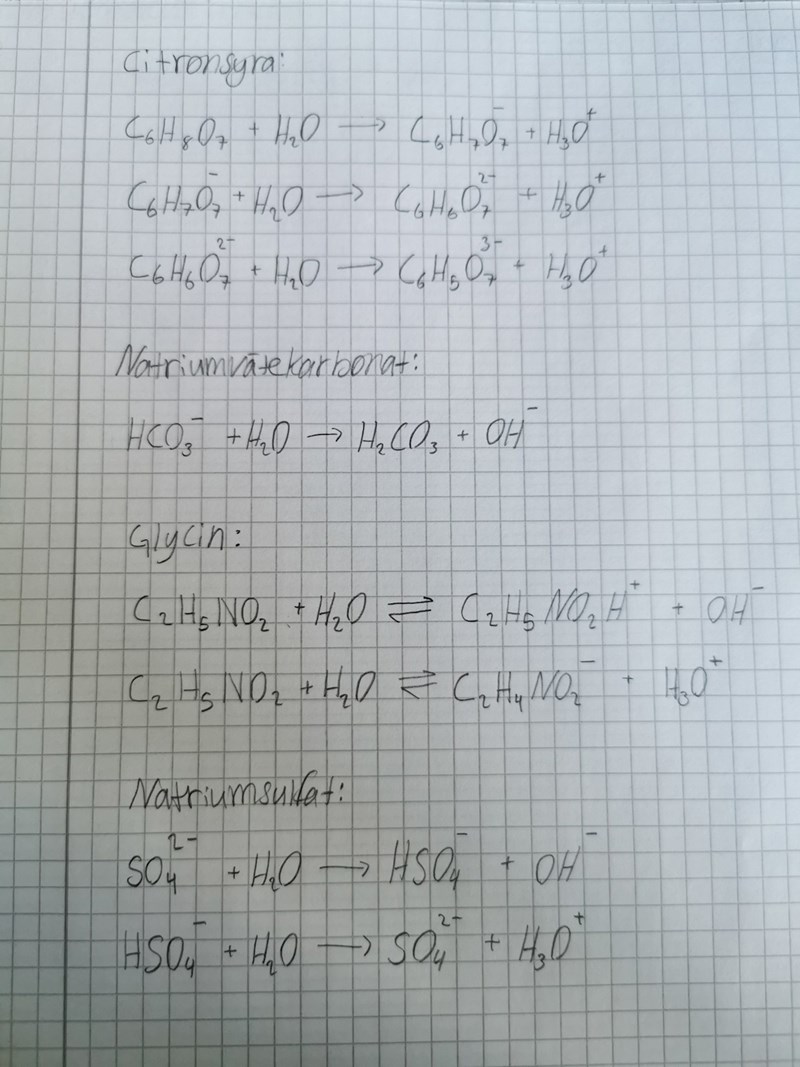 Citronsyra:
C₆H₈O₇ + H₂O → C₆H₇O₇⁻ + H₃O⁺
C₆H₇O₇⁻ + H₂O → C₆H₆O₇²⁻ + H₃O⁺
C₆H₆O₇²⁻ + H₂O → C₆H₅O₇³⁻ + H₃O⁺
Natriumvätekarbonat:
HCO₃⁻ + H₂O → H₂CO₃ + OH⁻
Glycin:
C₂H₅NO₂ + H₂O ⇌ C₂H₅NO₂H⁺ + OH⁻
C₂H₅NO₂ + H₂O ⇌ C₂H₄NO₂⁻ + H₃O⁺
Natriumsulfat:
SO₄²⁻ + H₂O → HSO₄⁻ + OH⁻
HSO₄⁻ + H₂O → SO₄²⁻ + H₃O⁺